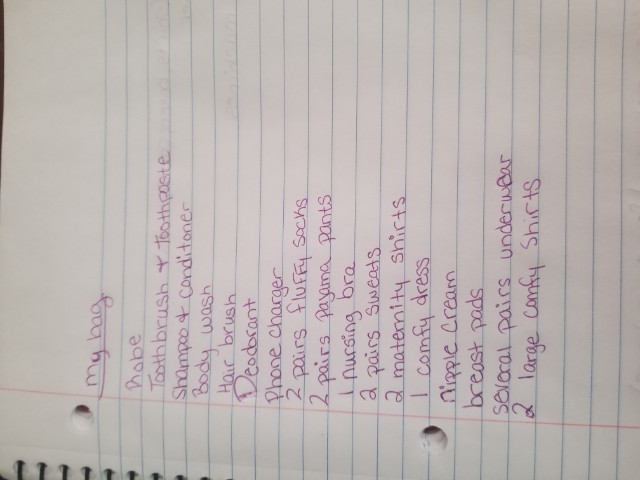 my bag
Robe
Toothbrush + Toothpaste
Shampoo + conditioner
Body wash
Hair brush
Deodorant
Phone charger
2 pairs fluffy socks
2 pairs pajama pants
1 nursing bra
2 pairs sweats
2 maternity shirts
1 comfy dress
nipple cream
breast pads
several pairs underwear
2 large comfy shirts